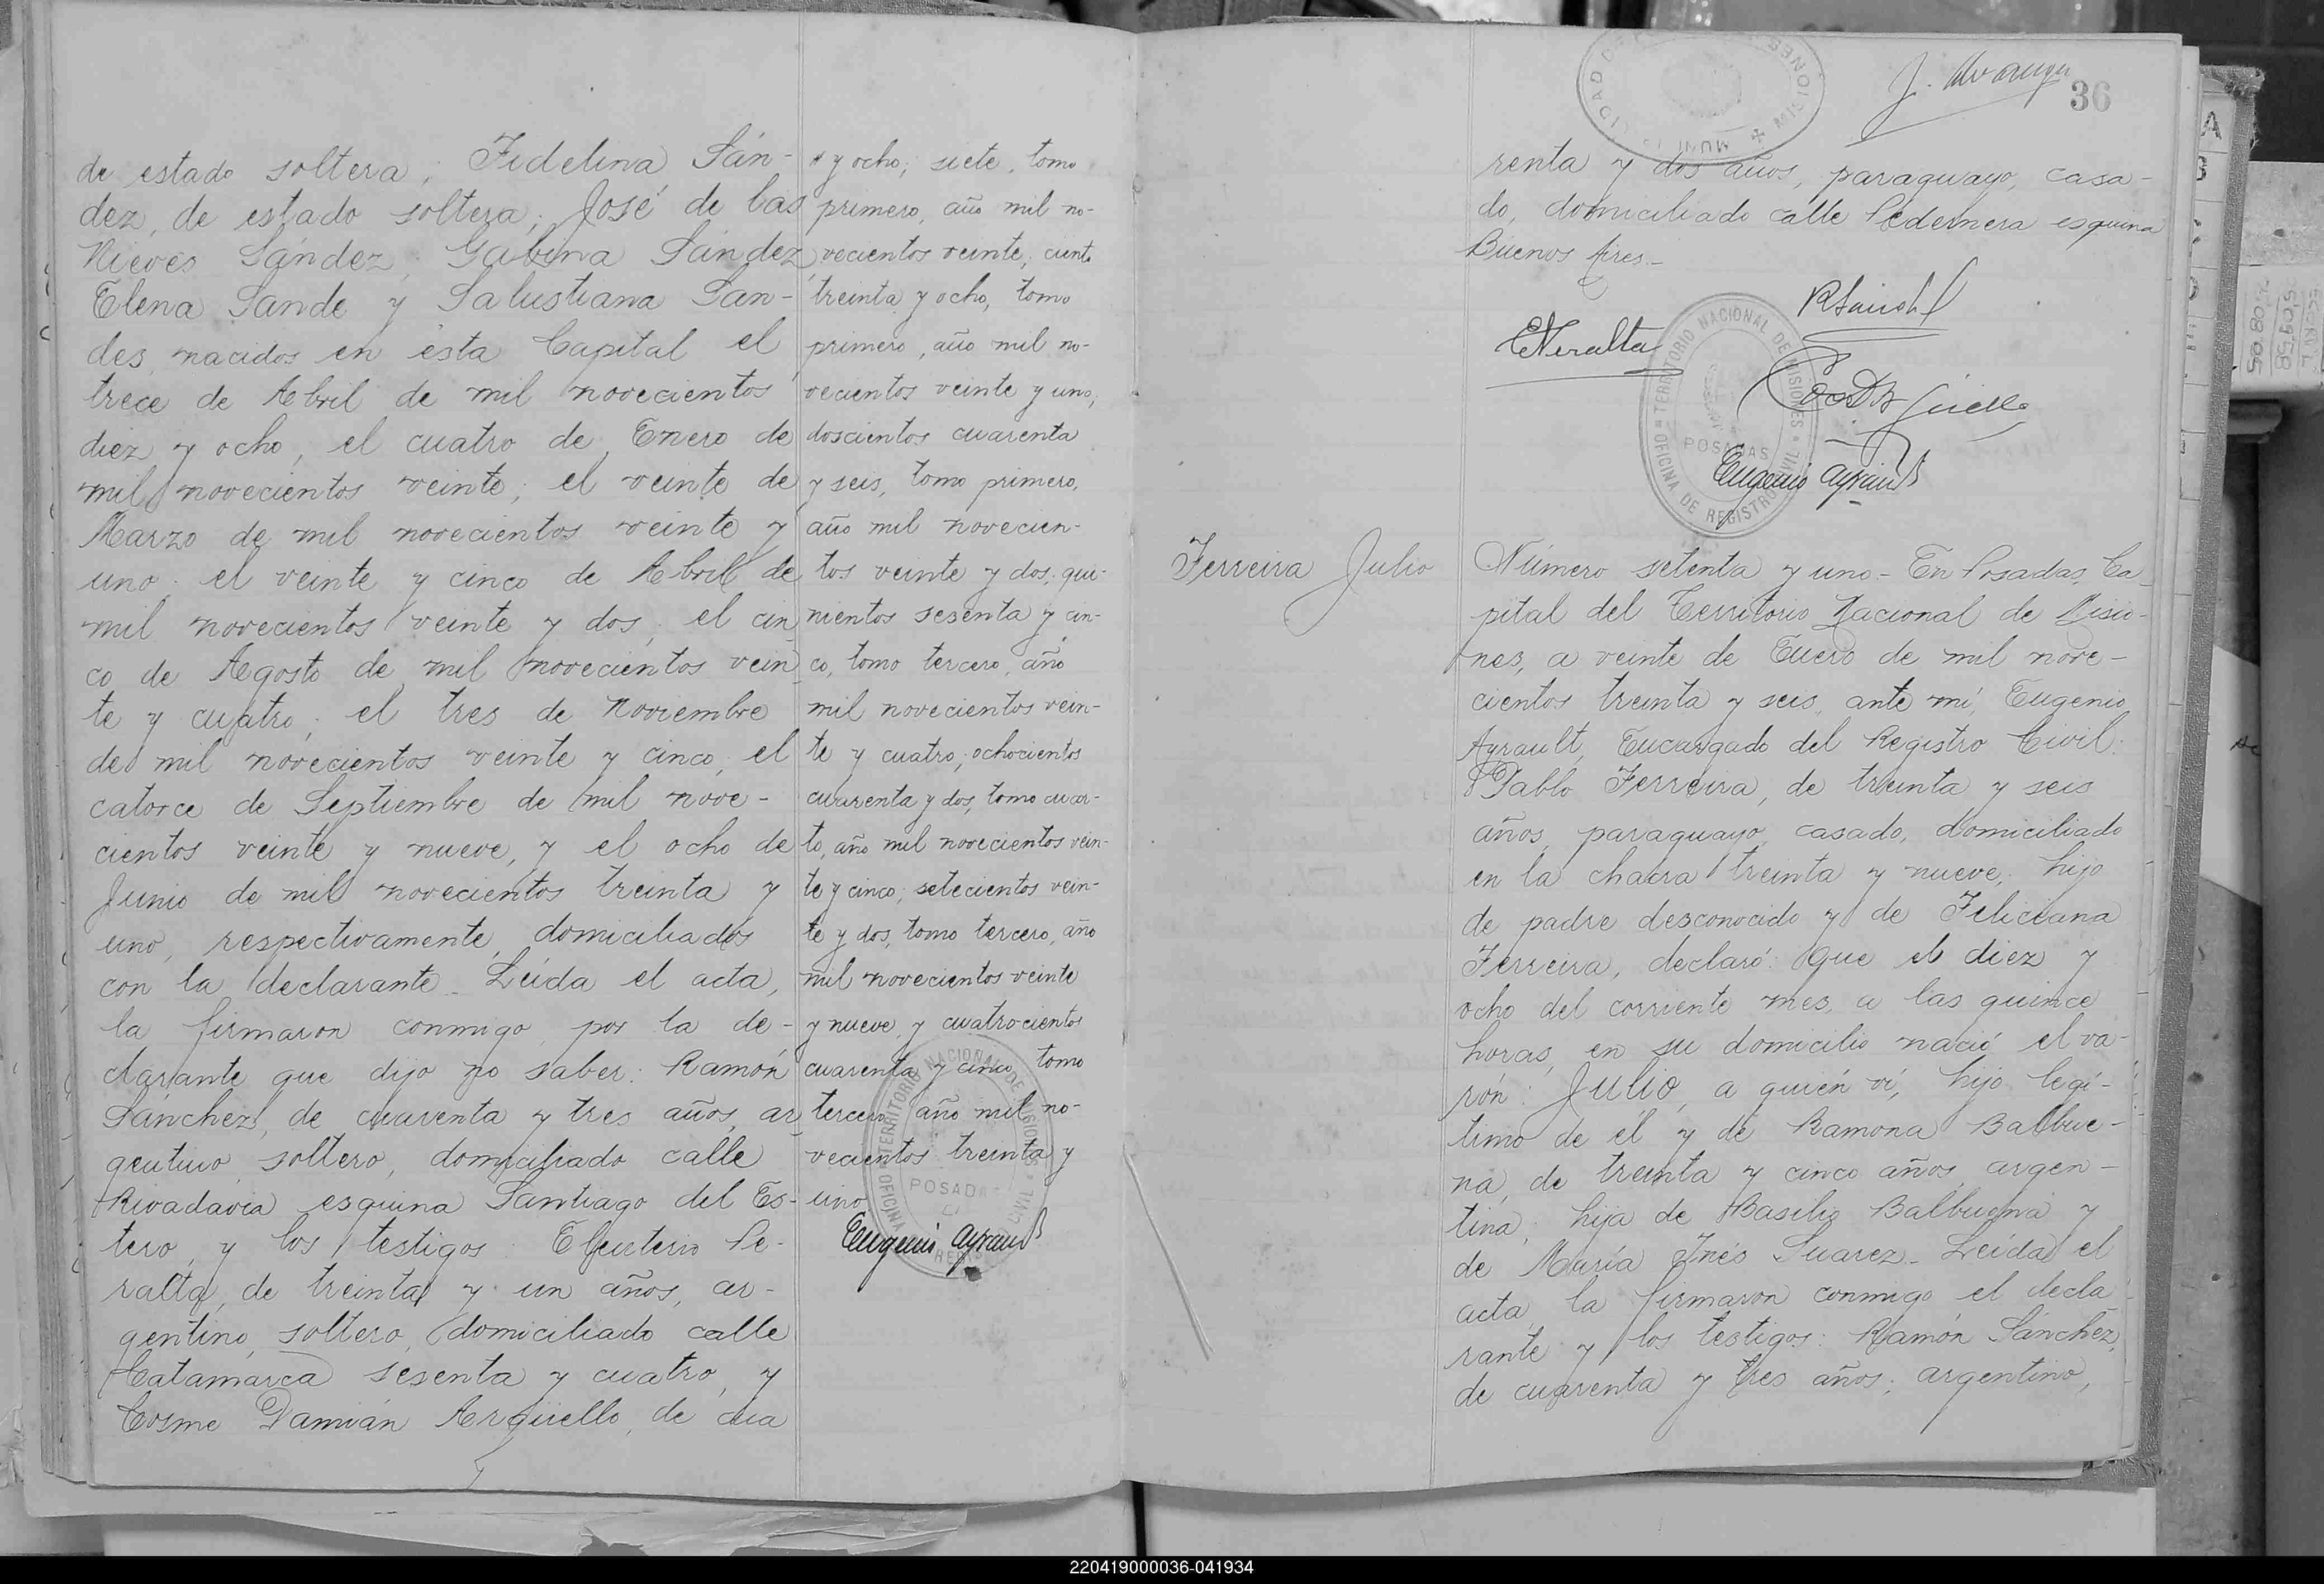 de estado soltera; Fidelina Sán-
dez, de estado soltera; José de las
Nieves Sández; Gabina Sández,
Elena Sande y Salustiana San-
des, nacidos en ésta Capital el
trece de Abril de mil novecientos
diez y ocho, el cuatro de Enero de
mil novecientos veinte; el veinte de
Marzo de mil novecientos veinte y
uno; el veinte y cinco de Abril de
mil novecientos veinte y dos; el cin
co de Agosto de mil novecientos vein
te y cuatro; el tres de Noviembre
de mil novecientos veinte y cinco; el
catorce de Septiembre de mil nove-
cientos veinte y nueve, y el ocho de
Junio de mil novecientos treinta y
uno, respectivamente, domiciliados
con la declarante. Leída el acta,
la firmaron conmigo, por la de-
clarante que dijo no saber: Ramón
Sánchez, de cuarenta y tres años, ar
gentino, soltero, domiciliado calle
Rivadavia esquina Santiago del Es-
tero, y los testigos: Eleuterio Pe-
ralta, de treinta y un años, ar-
gentino, soltero, domiciliado calle
Catamarca sesenta y cuatro, y
Cosme Damián Argüello, de cua
y ocho; siete, tomo
primero, año mil no-
vecientos veinte; ciento
treinta y ocho, tomo
primero, año mil no-
vecientos veinte y uno;
doscientos cuarenta
y seis, tomo primero,
año mil novecien-
tos veinte y dos; qui-
nientos sesenta y cin-
co, tomo tercero, año
mil novecientos vein-
te y cuatro; ochocientos
cuarenta y dos, tomo cuar-
to, año mil novecientos vein-
te y cinco; setecientos vein-
te y dos, tomo tercero, año
mil novecientos veinte
y nueve, y cuatrocientos
cuarenta y cinco, tomo
tercero, año mil no-
vecientos treinta y
uno
Eugenio Ayrault
OFICINA DE REGISTRO CIVIL TERRITORIO NACIONAL DE MISIONES
POSADAS
36
renta y dos años, paraguayo, casa-
do, domiciliado calle Pedernera esquina
Buenos Aires.-
EPeralta
TERRITORIO NACIONAL DE MISIONES
OFICINA DE REGISTRO CIVIL
POSADAS
Eugenio Ayrault
Ferreira Julio
Número setenta y uno - En Posadas, Ca-
pital del Territorio Nacional de Misio-
nes, a veinte de Enero de mil nove-
cientos treinta y seis, ante mí, Eugenio
Ayrault, Encargado del Registro Civil:
Pablo Ferreira, de treinta y seis
años, paraguayo, casado, domiciliado
en la chacra treinta y nueve, hijo
de padre desconocido y de Feliciana
Ferreira, declaró: Que el diez y
ocho del corriente mes, a las quince
horas, en su domicilio nació el va-
rón: Julio, a quién ví, hijo legí-
timo de él y de Ramona Balbue-
na, de treinta y cinco años, argen-
tina, hija de Basilio Balbuena y
de María Inés Suarez. Leída el
acta, la firmaron conmigo el decla-
rante y los testigos: Ramón Sánchez,
de cuarenta y tres años, argentino,
220419000036-041934